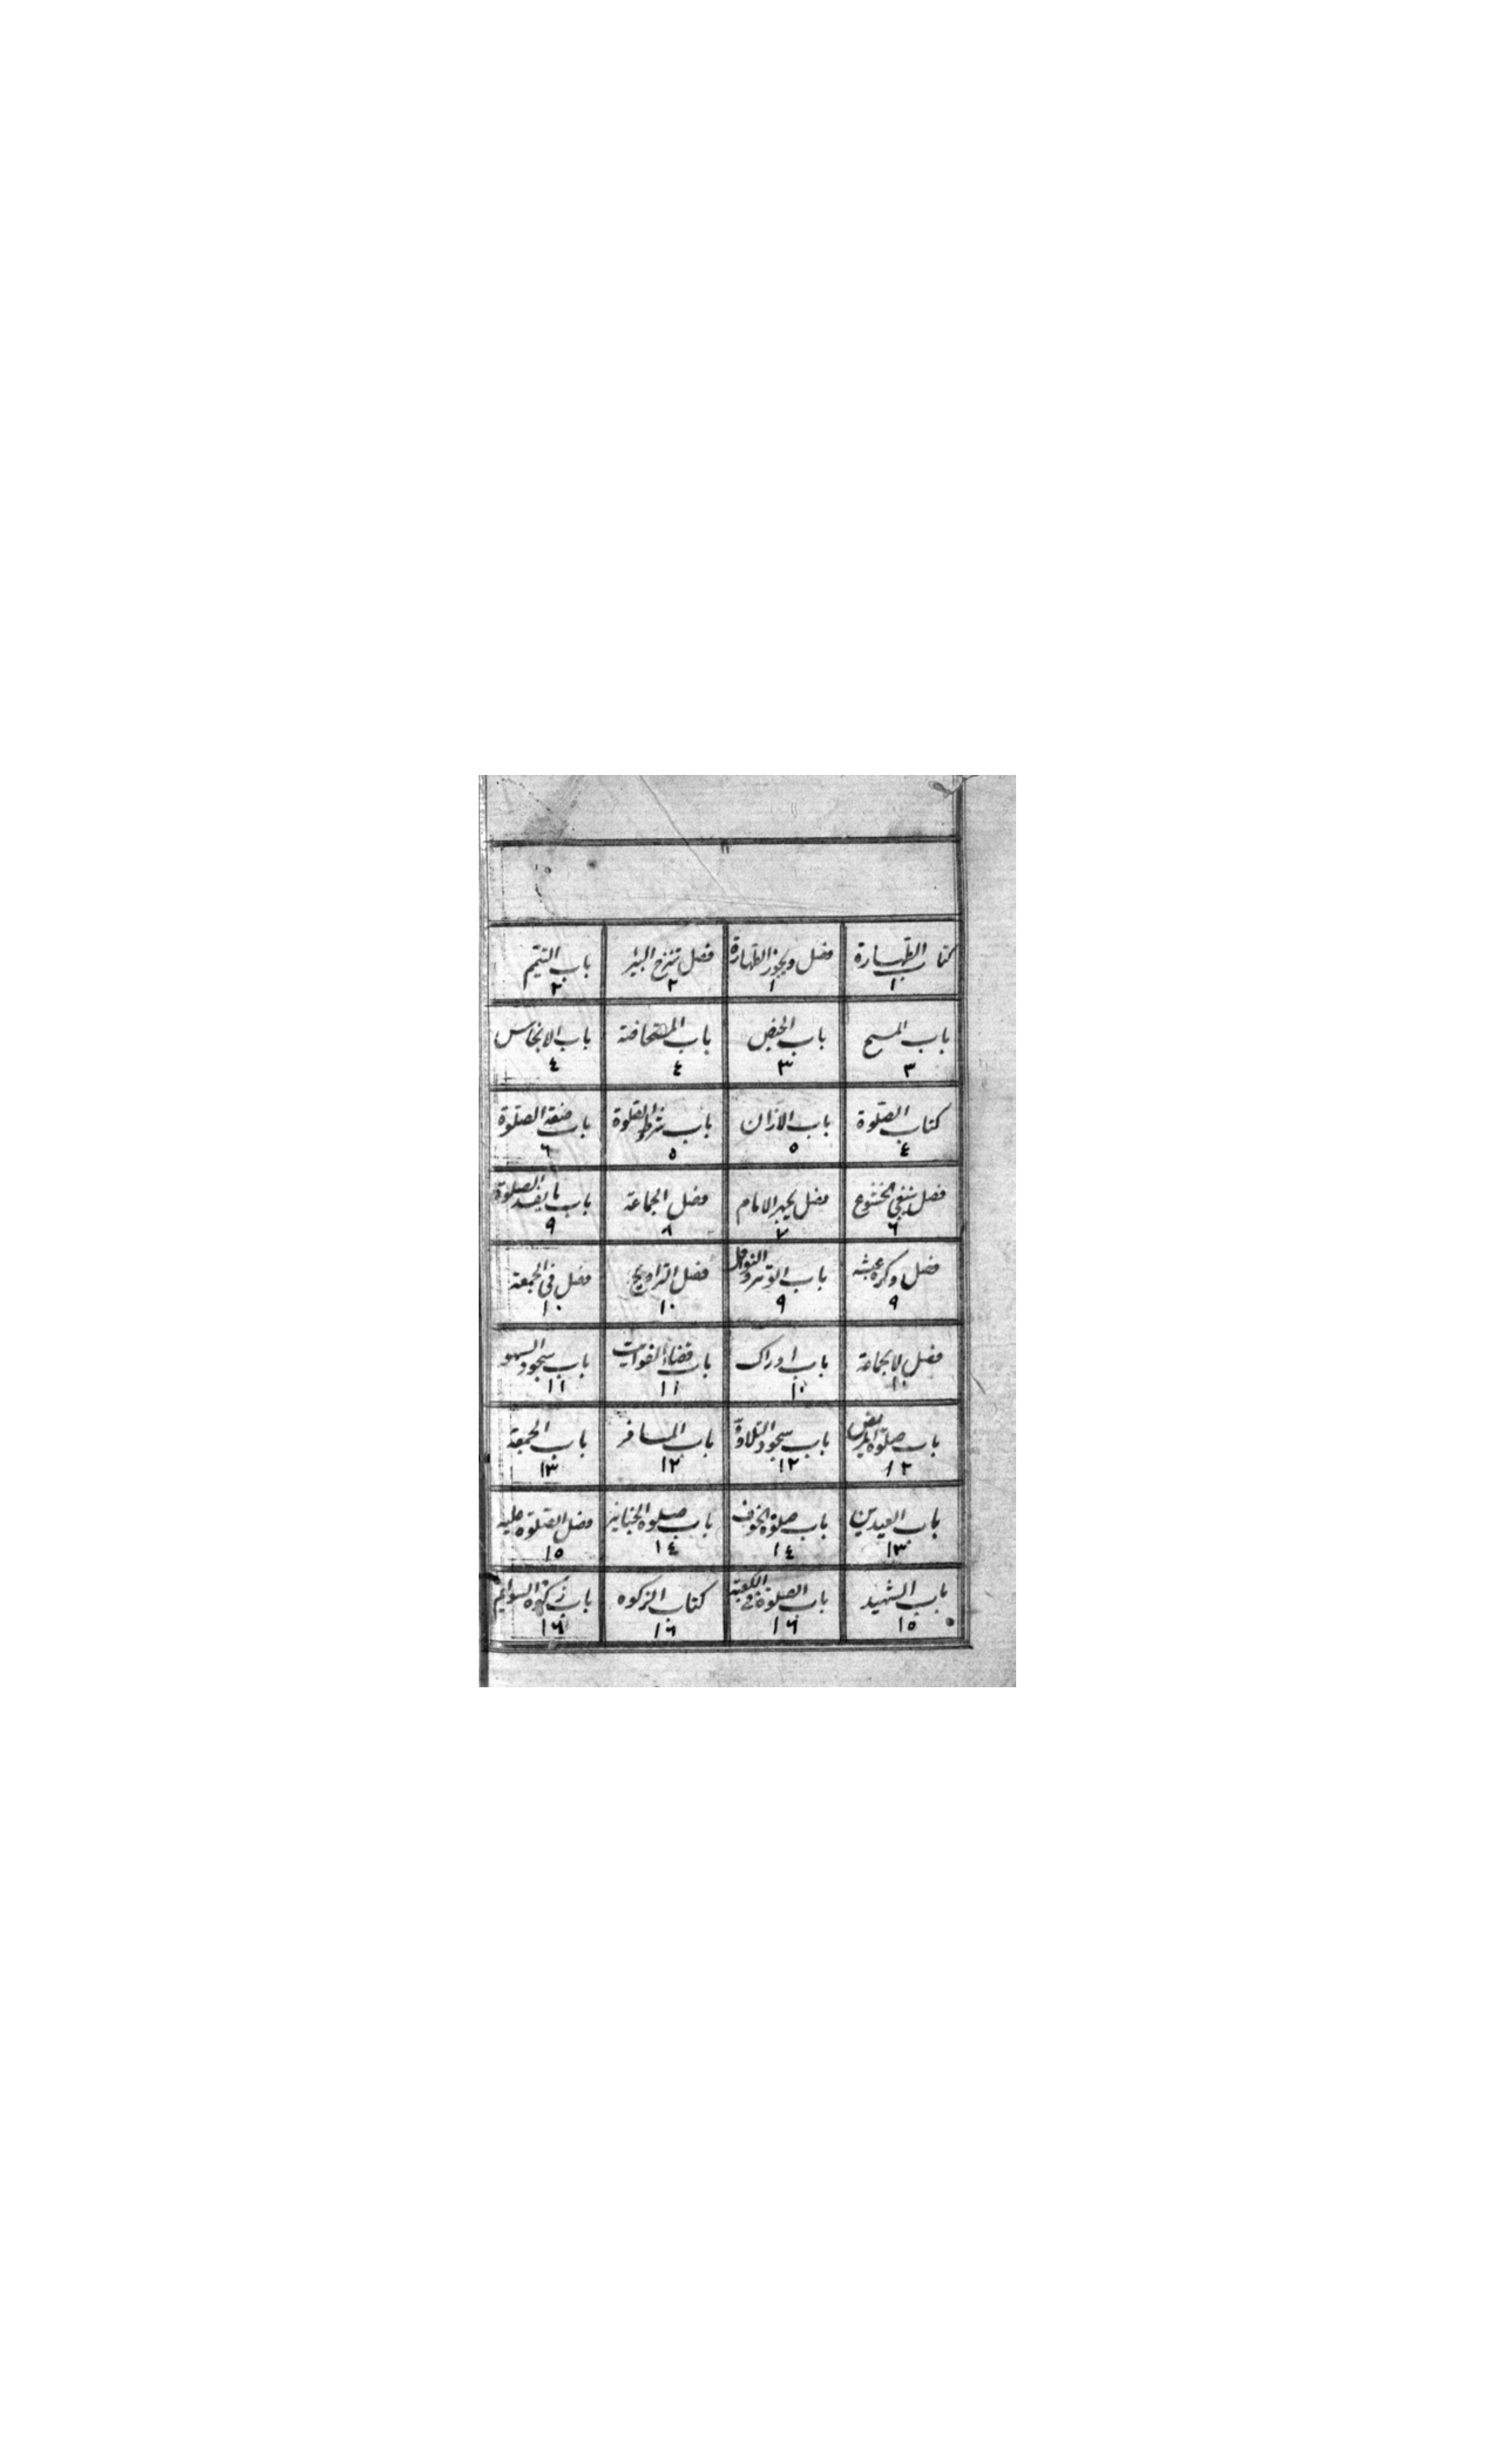 كتاب الطهارة فصل ويجوز الطهارة فصل تنزح البئر باب التيمم
١ ١ ٢ ٢
باب المسح باب الحيض باب المستحاضة باب الانجاس
٣ ٣ ٤ ٤
كتاب الصلوة باب الاذان باب شرط الصلوة باب صفة الصلوة
٤ ٥ ٥ ٦
فصل ينبغي الخشوع فصل يجهر الامام فصل الجماعة باب ما يفسد الصلوة
٦ ٧ ٨ ٩
فصل وكره عبثه باب الوتر والنوافل فصل التراويح فصل في الجمعة
٩ ٩ ١٠ ١٠
فصل لا بجماعة باب ادراك باب قضاء الفوايت باب سجود السهو
١٠ ١٠ ١١ ١١
باب صلوة المريض باب سجود التلاوة باب المسافر باب الجمعة
١٢ ١٢ ١٢ ١٣
باب العيدين باب صلوة الخوف باب صلوة الجنايز فصل الصلوة عليه
١٣ ١٤ ١٤ ١٥
باب الشهيد باب الصلوة في الكعبة كتاب الزكوه باب زكوة السوايم
١٥ ١٦ ١٦ ١٦